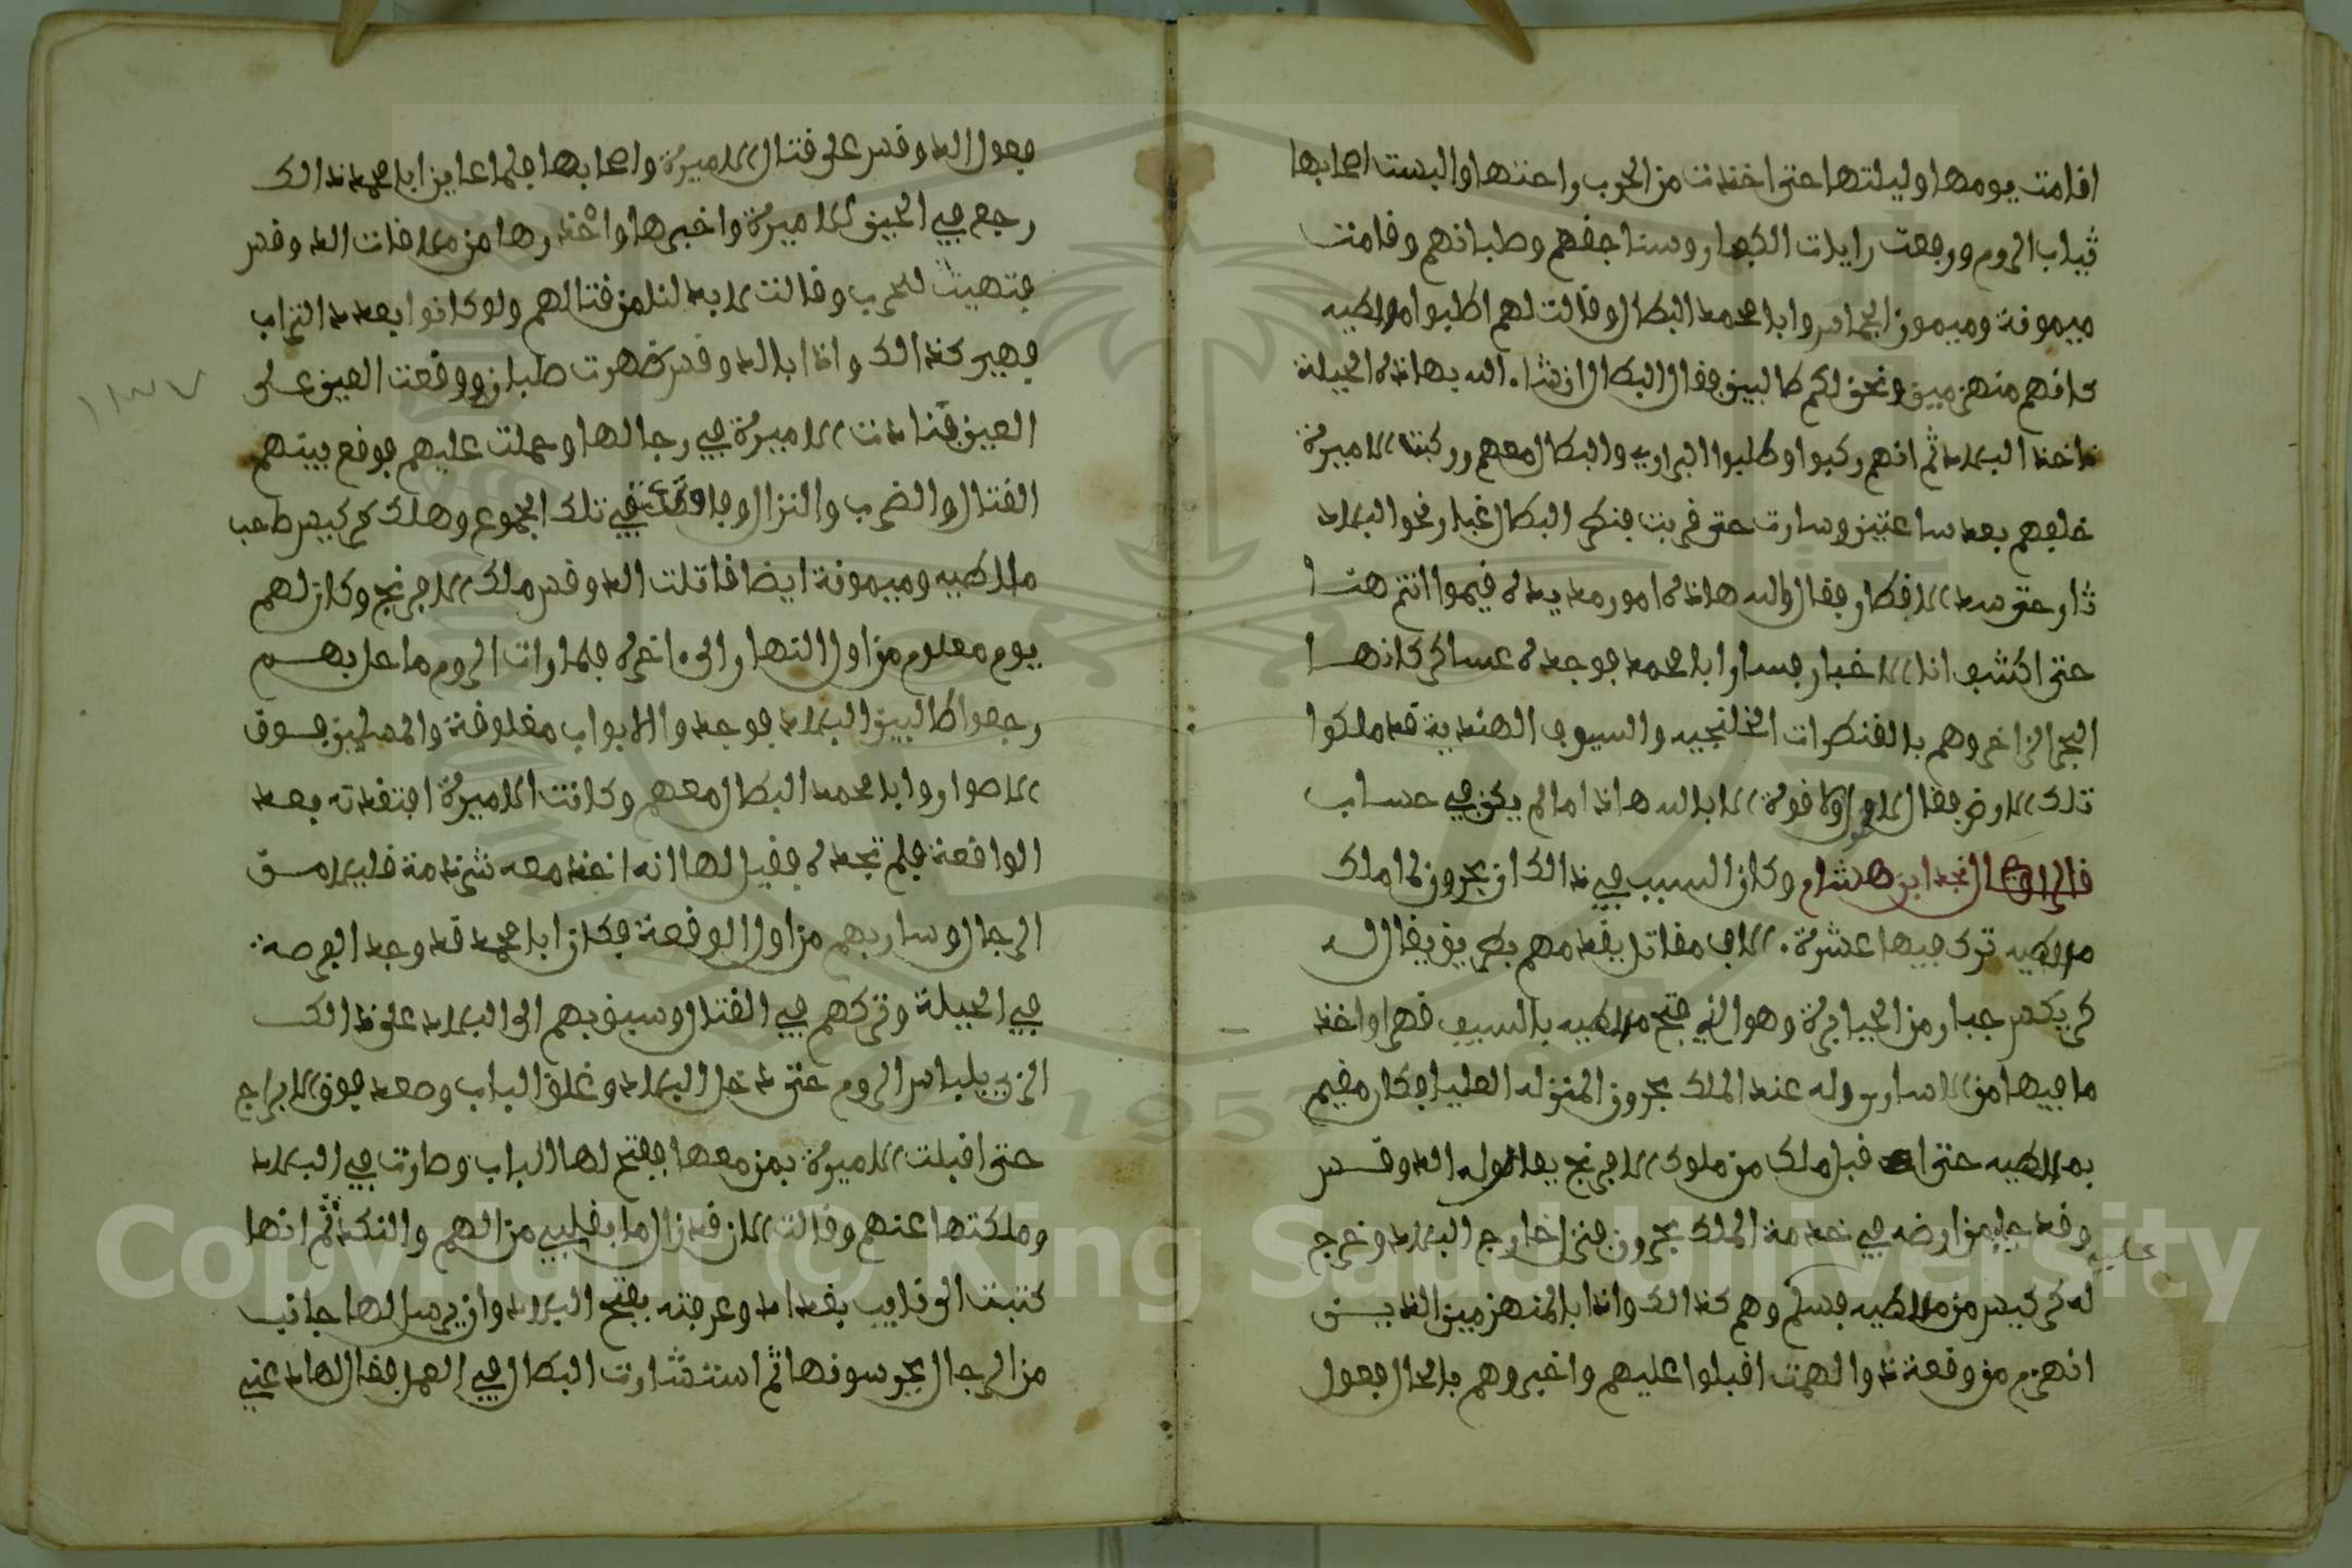 اقامت يومها وليلتها حتى اخذت من الحرب راحتها والبست اصحابها
ثياب الروم ورفعت رايات الكفار وسناجفهم وصلبانهم وقامت
ميمونة وميمون الجاسر وابا محمد البطال وقالت لهم اطلبوا ملاطيه
كانهم منهزمين ونحن لكم طالبين فقال البطال ان شاء الله بهاذه الحيلة
ناخذ البلاد ثم انهم ركبوا وطلبوا البراري والبطال معهم وركبت الاميرة
خلفهم بعد ساعتين وسارت حتى قربت فنظر البطال غبار نحو البلاد
ثار حتى سد الاقطار فقال والله هاذه امور مديدة قيموا انتم هنا
حتى اكشف انا الاخبار فسار ابا محمد فوجده عساكر كانها
البحر الزاخر وهم بالقنطرات الخلنجيه والسيوف الهندية قد ملكوا
تلك الارض فقال لا حول ولا قوة الا بالله هاذا ما لم يكن في حساب
قال الراوي نجد ابن هشام وكان السبب في ذالك ان بحرون لما ملك
ملاطيه ترك فيها عشرة الاف مقاتل يقدمهم بطريق يقال له
كريكس جبار من الجبابرة وهو الذي فتح ملاطيه بالسيف قهرا واخذ
ما فيها من الاسارى وله عند الملك بحرون المنزله العليا فكان مقيم
بملاطيه حتى اقبل ملك من ملوك الافرنج يقال له الدوقس
وقد جا من ارضه في خدمة الملك بحرون فنزل خارج البلاد وخرج
عليه
له كركيس من ملاطيه فسلم وهم كذالك واذا بالمنهزمين الذين
انهزم من وقعة ذوالهمت اقبلوا عليهم واخبروهم بالحال فعول
فعول الدوقس على قتال الاميرة واصحابها فلما عاين ابا محمد ذالك
رجع في الحين للاميرة واخبرها واحذرها من ملاقات الدوقس
فتهيت للحرب وقالت لا بد لنا من قتالهم ولو كانوا بعدد التراب
فهي كذالك واذا بالدوقس ظهرت صلبانه ووقعت العين على
العين فنادت الاميرة في رجالها وحملت عليهم فوقع بينهم
القتال والضرب والنزال وفا وكثـ في تلك الجموع وهلك كركيس صاحب
ملاطيه وميمونة ايضا قاتلت الدوقس ملك الافرنج وكان لهم
يوم معلوم من اول النهار الى اخره فلما رات الروم ما حل بهم
رجعوا طالبين البلاد فوجدوا الابواب مغلوقة والمسلمين فوق
الاصوار وابا محمد البطال معهم وكانت الاميرة افتقدته بعد
الواقعة فلم تجده فقيل لها انه اخذ معه شرذمة قليلا من
الرجال وسار بهم من اول الوقعة فكان ابا محمد قد وجد الفرصة
في الحيلة وتركهم في القتال وسبق بهم الى البلاد على ذالك
الزي بلباس الروم حتى دخل البلاد وغلق الباب وصعد فوق الابراج
حتى اقبلت الاميرة بمن معها ففتح لها الباب وصارت في البلاد
وملكتها عنهم وقالت الان قد زال ما بقلبي من الهم والنكد ثم انها
كتبت الى نايب بغداد وعرفته بفتح البلاد وان يرسل لها جانب
من الرجال يحرسونها ثم استشارت البطال في العمل فقال لها دعني
١٣٧
Copyright © King Saud University
1957